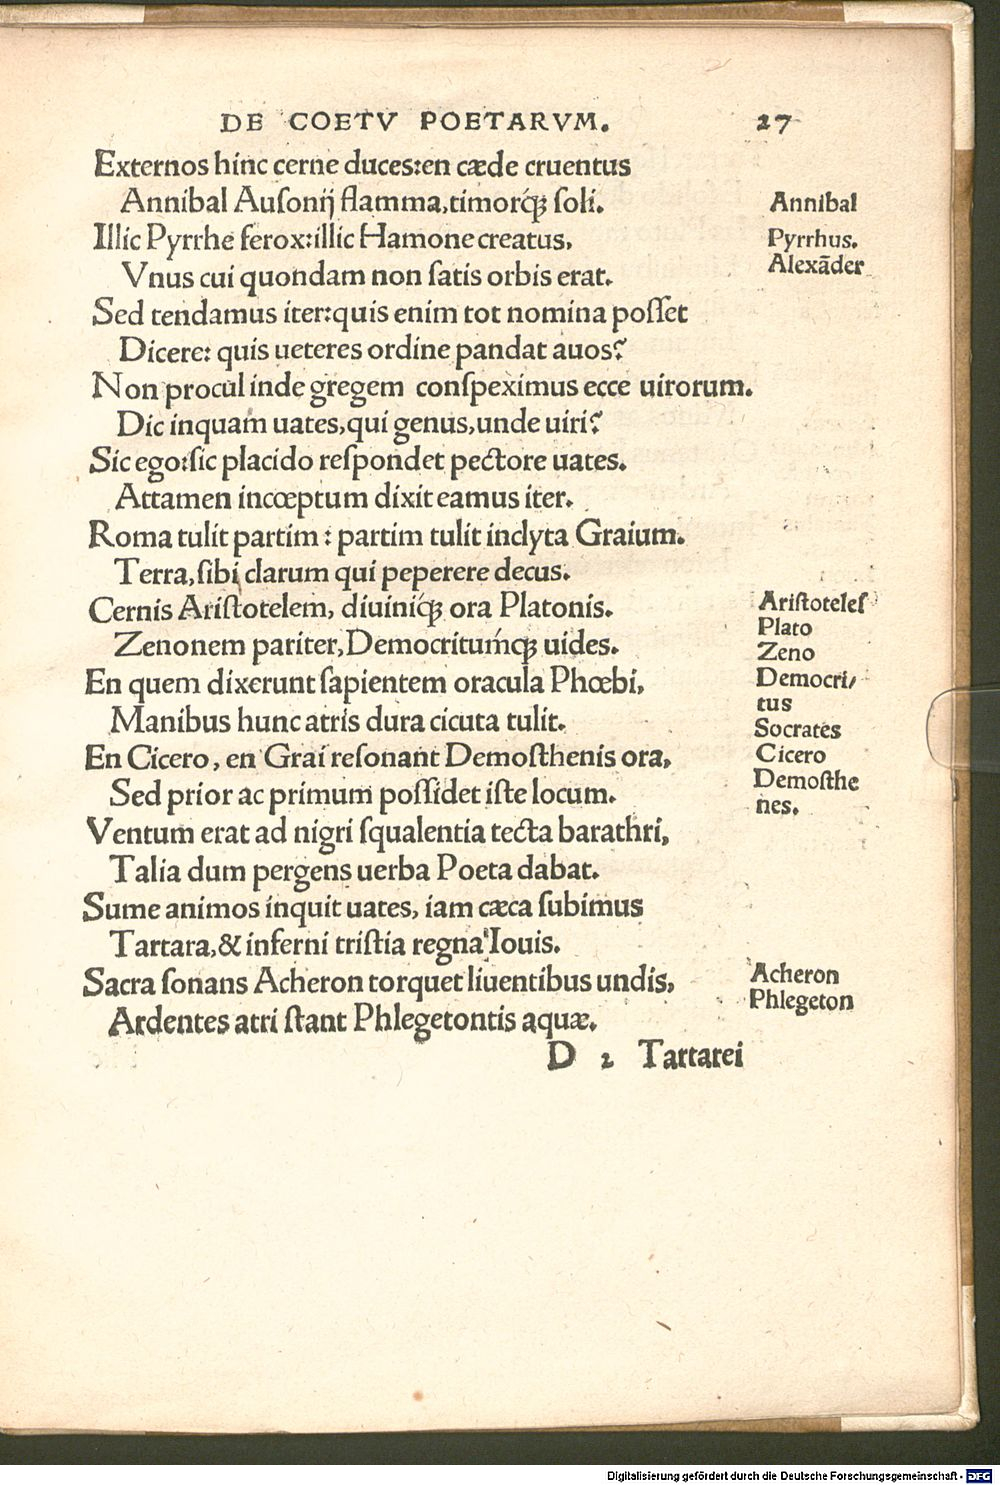 DE COETV POETARVM. 27
Externos hinc cerne duces:en cæde cruentus
Annibal Auſonij flamma,timorq́ꝫ ſoli. Annibal
Illic Pyrrhe ferox:illic Hamone creatus, Pyrrhus.
Vnus cui quondam non ſatis orbis erat. Alexāder
Sed tendamus iter:quis enim tot nomina poſſet
Dicere: quis ueteres ordine pandat auos?
Non procul inde gregem conſpeximus ecce uirorum.
Dic inquam uates,qui genus,unde uiri?
Sic ego:ſic placido reſpondet pectore uates.
Attamen incœptum dixit eamus iter.
Roma tulit partim : partim tulit inclyta Graium.
Terra,ſibi clarum qui peperere decus.
Cernis Ariſtotelem, diuiniq́ꝫ ora Platonis. Ariſtoteleſ
Plato
Zenonem pariter,Democritumq́ꝫ uides. Zeno
En quem dixerunt ſapientem oracula Phœbi, Democri/
tus
Manibus hunc atris dura cicuta tulit. Socrates
En Cicero, en Grai reſonant Demoſthenis ora, Cicero
Sed prior ac primum poſſidet iſte locum. Demoſthe
nes.
Ventum erat ad nigri ſqualentia tecta barathri,
Talia dum pergens uerba Poeta dabat.
Sume animos inquit uates, iam cæca ſubimus
Tartara,& inferni triſtia regna Iouis.
Sacra ſonans Acheron torquet liuentibus undis, Acheron
Phlegeton
Ardentes atri ſtant Phlegetontis aquæ.
D 2 Tartarei
Digitalisierung gefördert durch die Deutsche Forschungsgemeinschaft - DFG